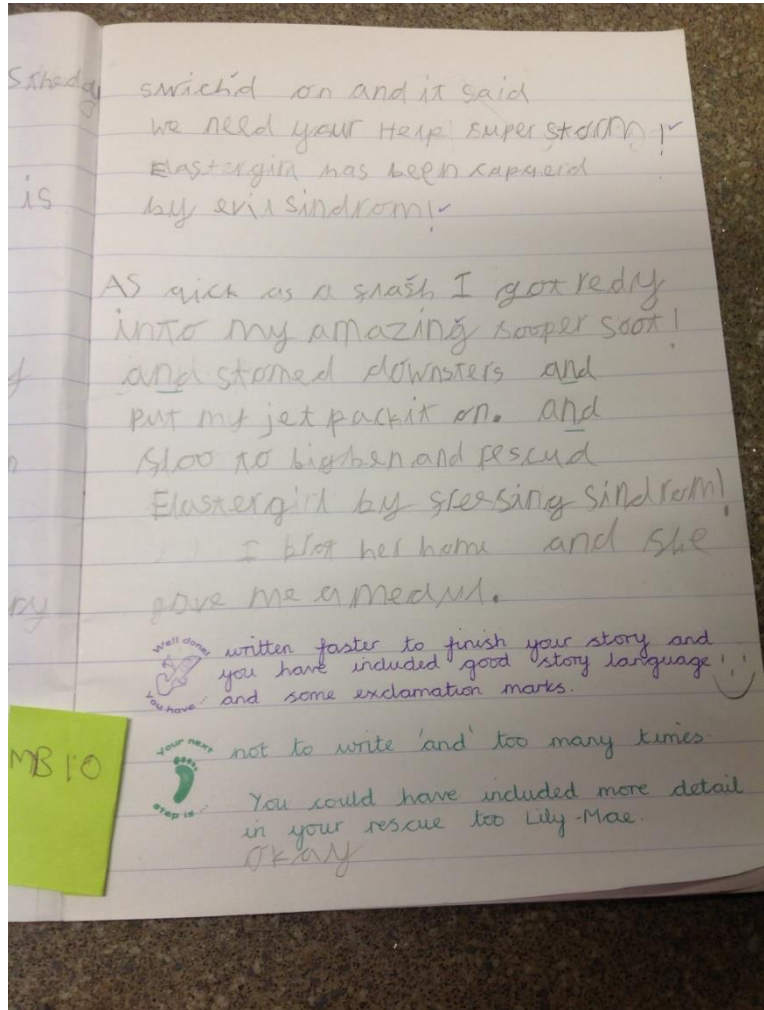 swich'd on and it said
we need your Help super storm!
Elastergirl has been kapqerd
by evil sindrom!
As qick as a flash I got redy
into my amazing sooper soot!
and stomed downsters and
put my jet packit on. and
floo to bigben and rescud
Elastergirl by freesing sindrom!
I brot her home and she
gave me a medul.
Well done! You have...
written faster to finish your story and
you have included good story language
and some exclamation marks.
Your next step is...
not to write 'and' too many times.
You could have included more detail
in your rescue too Lily-Mae.
okay
is
MB 1:0